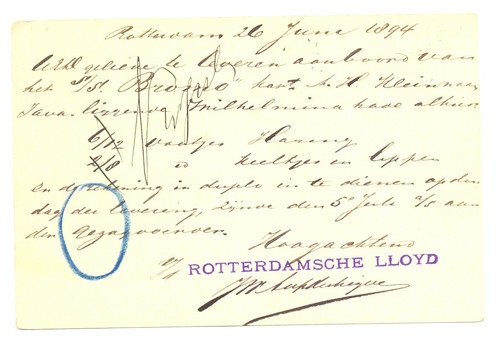 Rotterdam 26 Juni 1894
UEd. gelieve te leveren aan boord van
het S/S. "Bromo" kapt. A. H. Klein naar
Java. liggende Wilhelmina kade alhier
6/12 vaatjes Haring
2/8 " Keeltjes en Lippen
en de rekening in duplo in te dienen op den
dag der levering, zijnde den 5e Juli a/s aan
den Gezagvoerder.
Hoogachtend
ROTTERDAMSCHE LLOYD